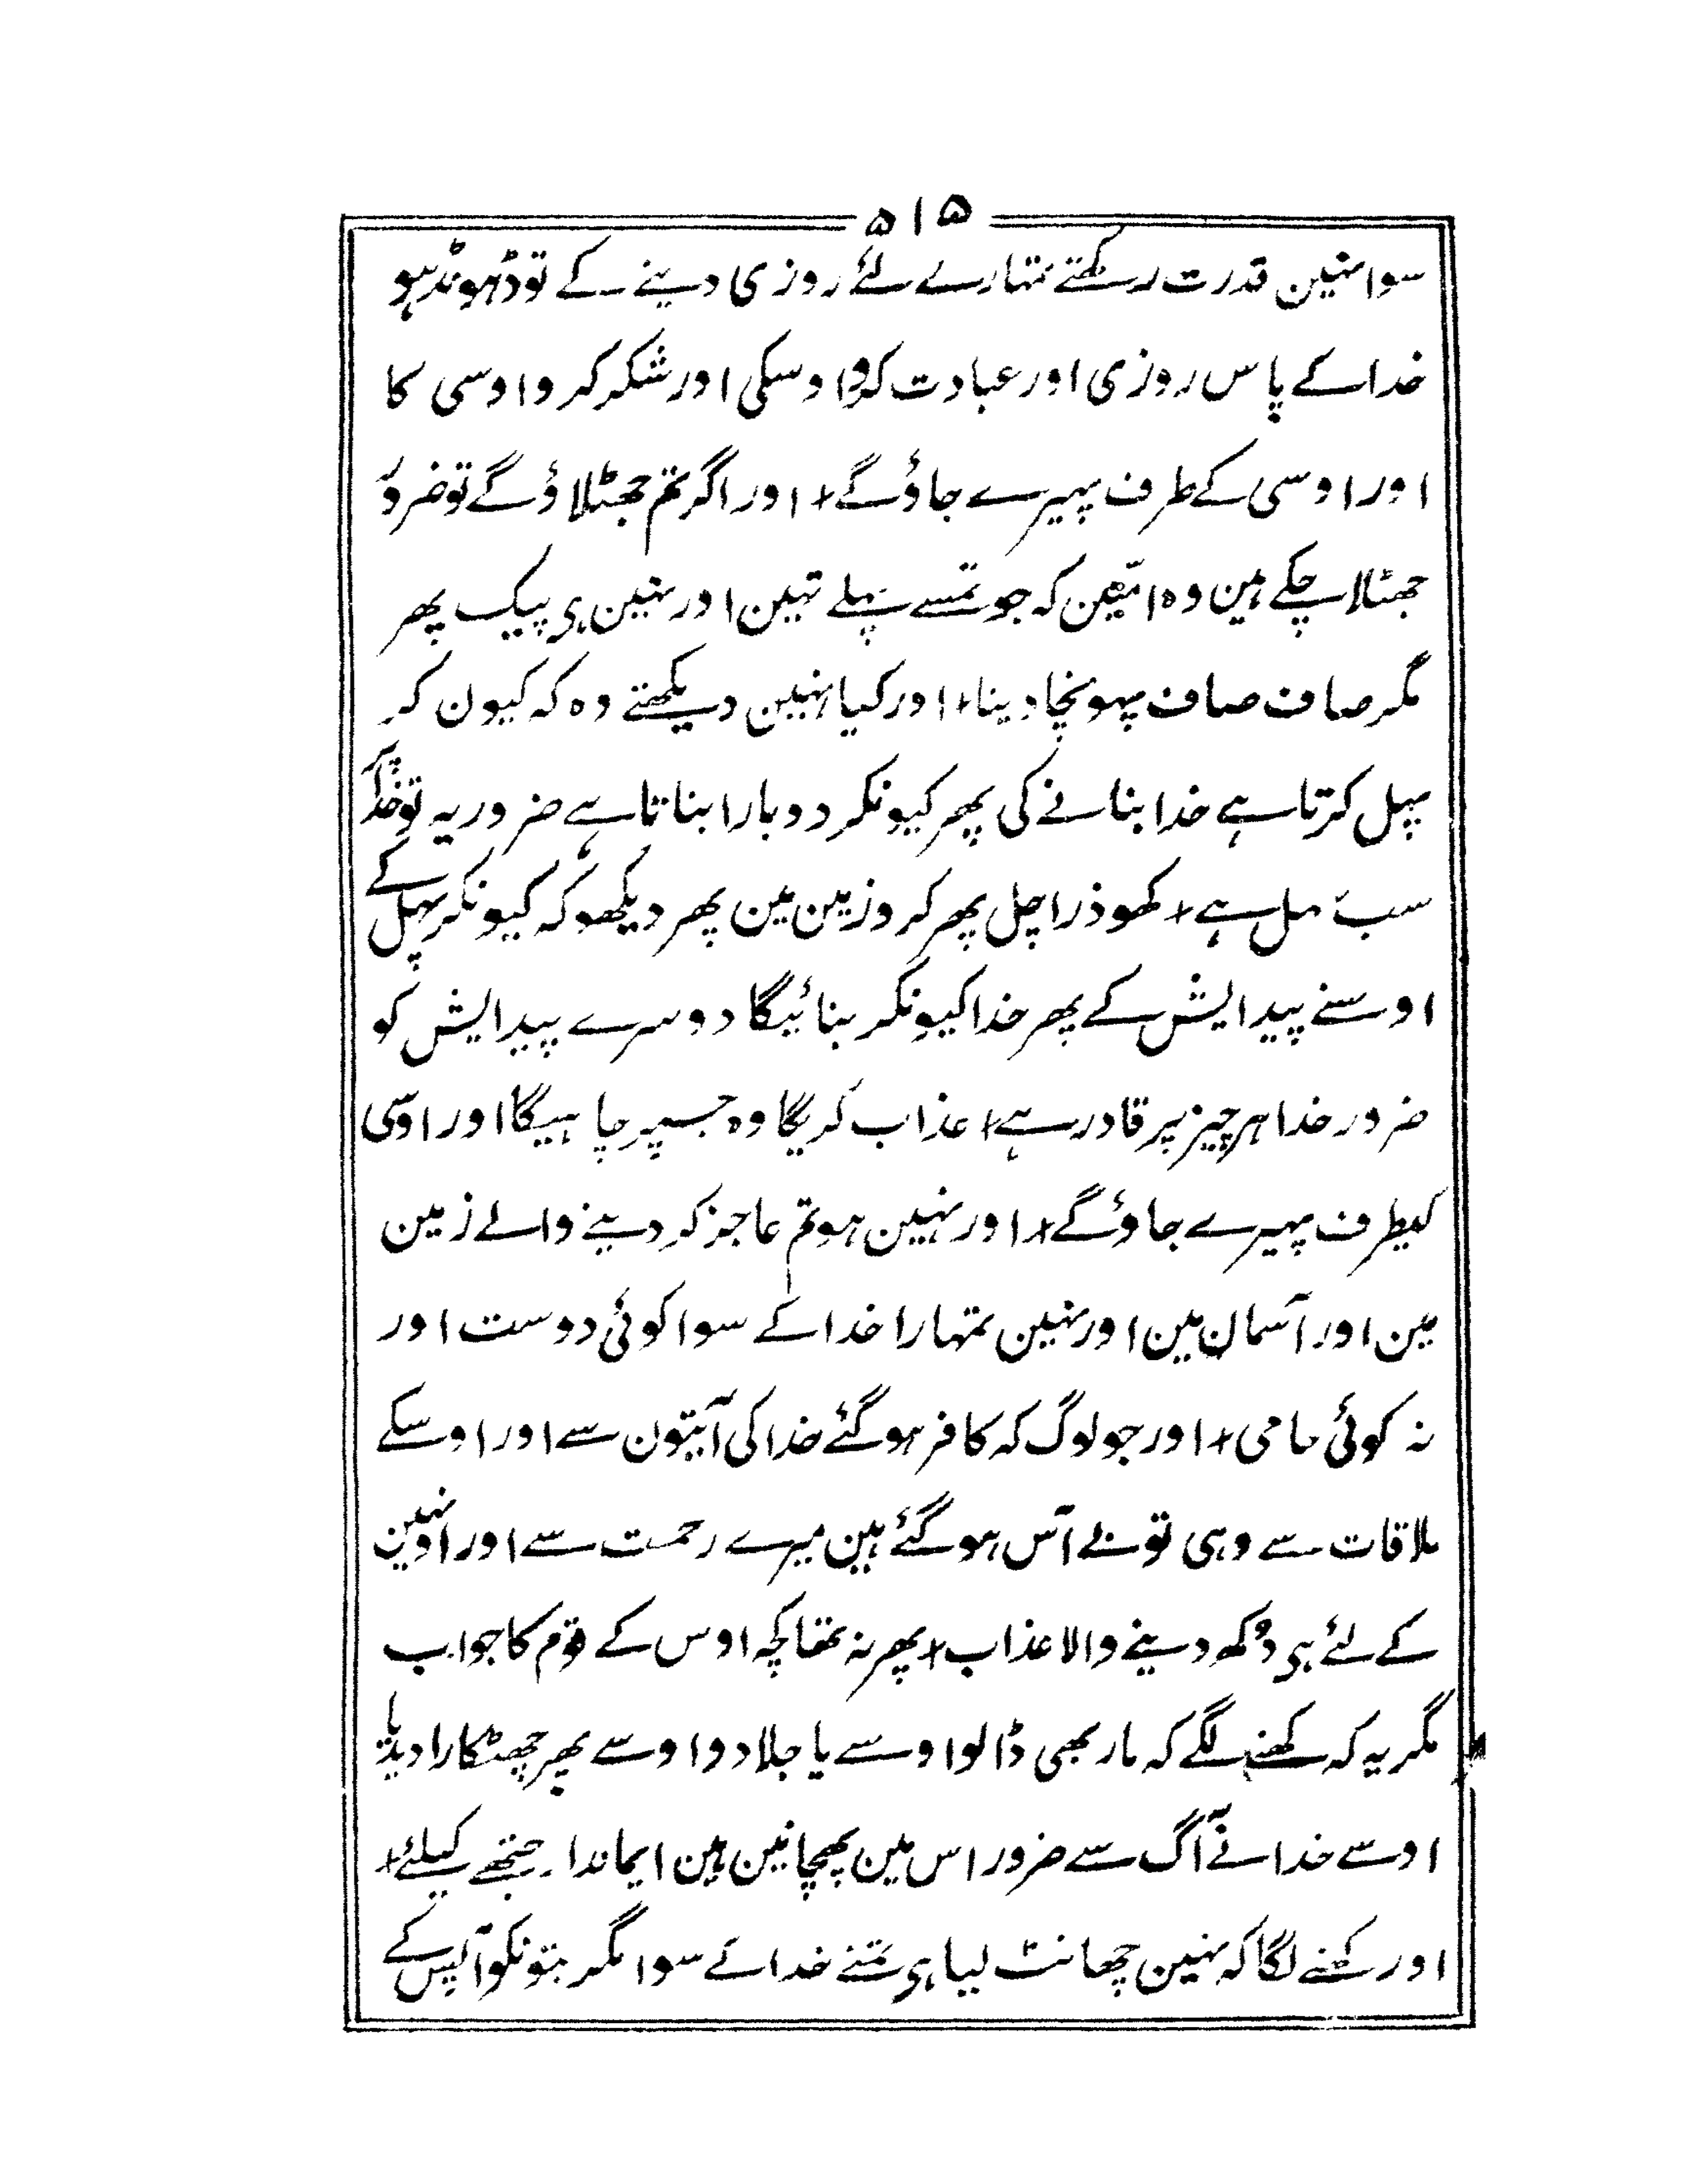 ۵۱۵
سوا نہین قدرت رکھتے تمہارے لئے روزی دینے کے تو ڈہونڈہو
خدا کے پاس روزی اور عبادت کرو اوسکی اور شکر کرو اوسی کا
اور اوسی کے طرف پہیرے جاؤگے + اور اگر تم جھٹلاؤگے تو ضرور
جھٹلا چکے ہین وہ امتین کہ جو تمسے پہلے تہین اور نہین ہی پیک پھر
مگر صاف صاف پہونچا دینا + اور کیا نہین دیکھتے وہ کہ کیون کر
پہل کرتا ہے خدا بنانے کی پھر کیونکر دوبارا بناتا ہے ضرور یہ تو خدا پر
سب سہل ہے + کھو ذرا چل پھر کرو زمین مین پھر دیکھو کہ کیونکر پہل کے
اوسنے پیدایش کے پھر خدا کیونکر بنائیگا دوسرے پیدایش کو
ضرور خدا ہر چیز پر قادر ہے + عذاب کریگا وہ جسپر چاہیگا اور اوسی
کیطرف پہیرے جاؤگے + اور نہین ہو تم عاجز کر دینے والے زمین
مین اور آسمان مین اور نہین تمہارا خدا کے سوا کوئی دوست اور
نہ کوئی حامی + اور جو لوگ کہ کافر ہوگئے خدا کی آیتون سے اور اوسکے
ملاقات سے وہی تو بے آس ہوگئے ہین میرے رحمت سے اور اونہین
کے لئے ہی دُکھ دینے والا عذاب + پھر نہ تھا کچہ اوس کے قوم کا جواب
مگر یہ کہ کھنے لگے کہ مار بھی ڈالو اوسے یا جلا دو اوسے پھر چھٹکارا دیدیا
اوسے خدا نے آگ سے ضرور اس مین پھچانین ہین ایماندار جتھے کیلئے +
اور کہنے لگا کہ نہین چھانٹ لیا ہی تمنے خدا کے سوا مگر بتونکو آپس کے